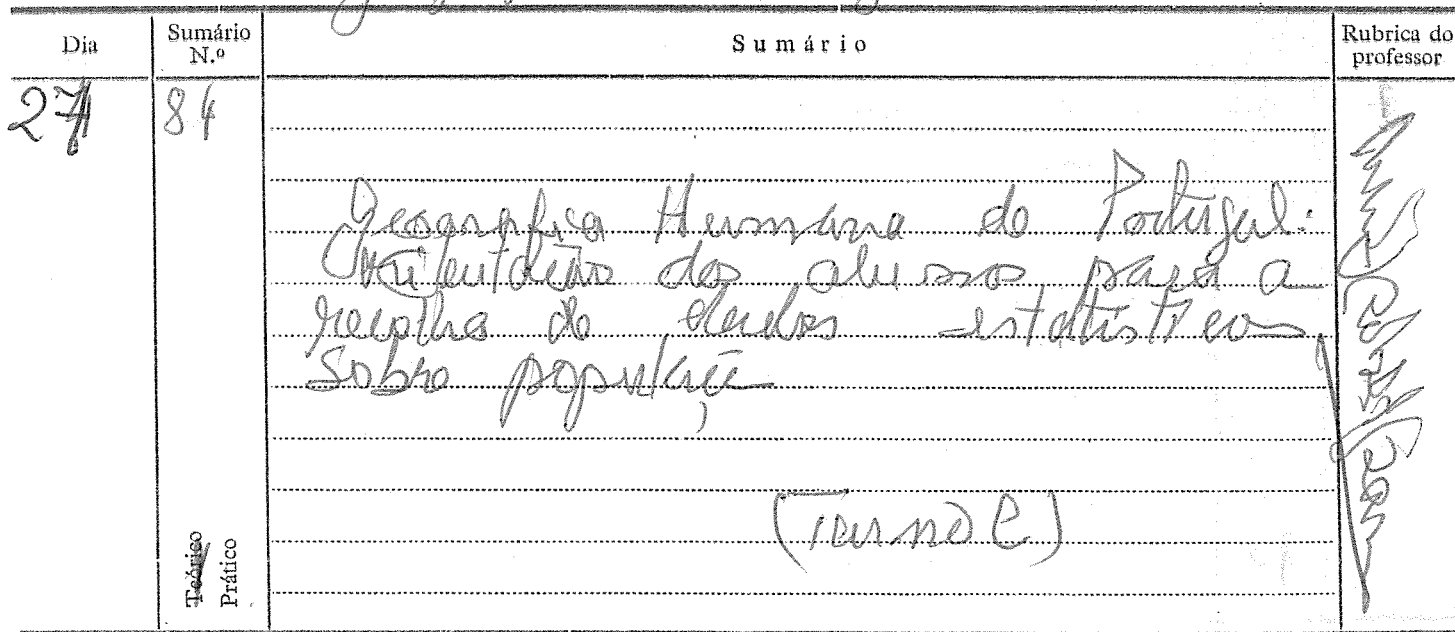 Dia
Sumário N.º
Sumário
Rubrica do professor
27
84
Geografia Humana de Portugal:
Orientação dos alunos para a
recolha de dados estatísticos
sobre população
(Turno C)
Teórico
Prático